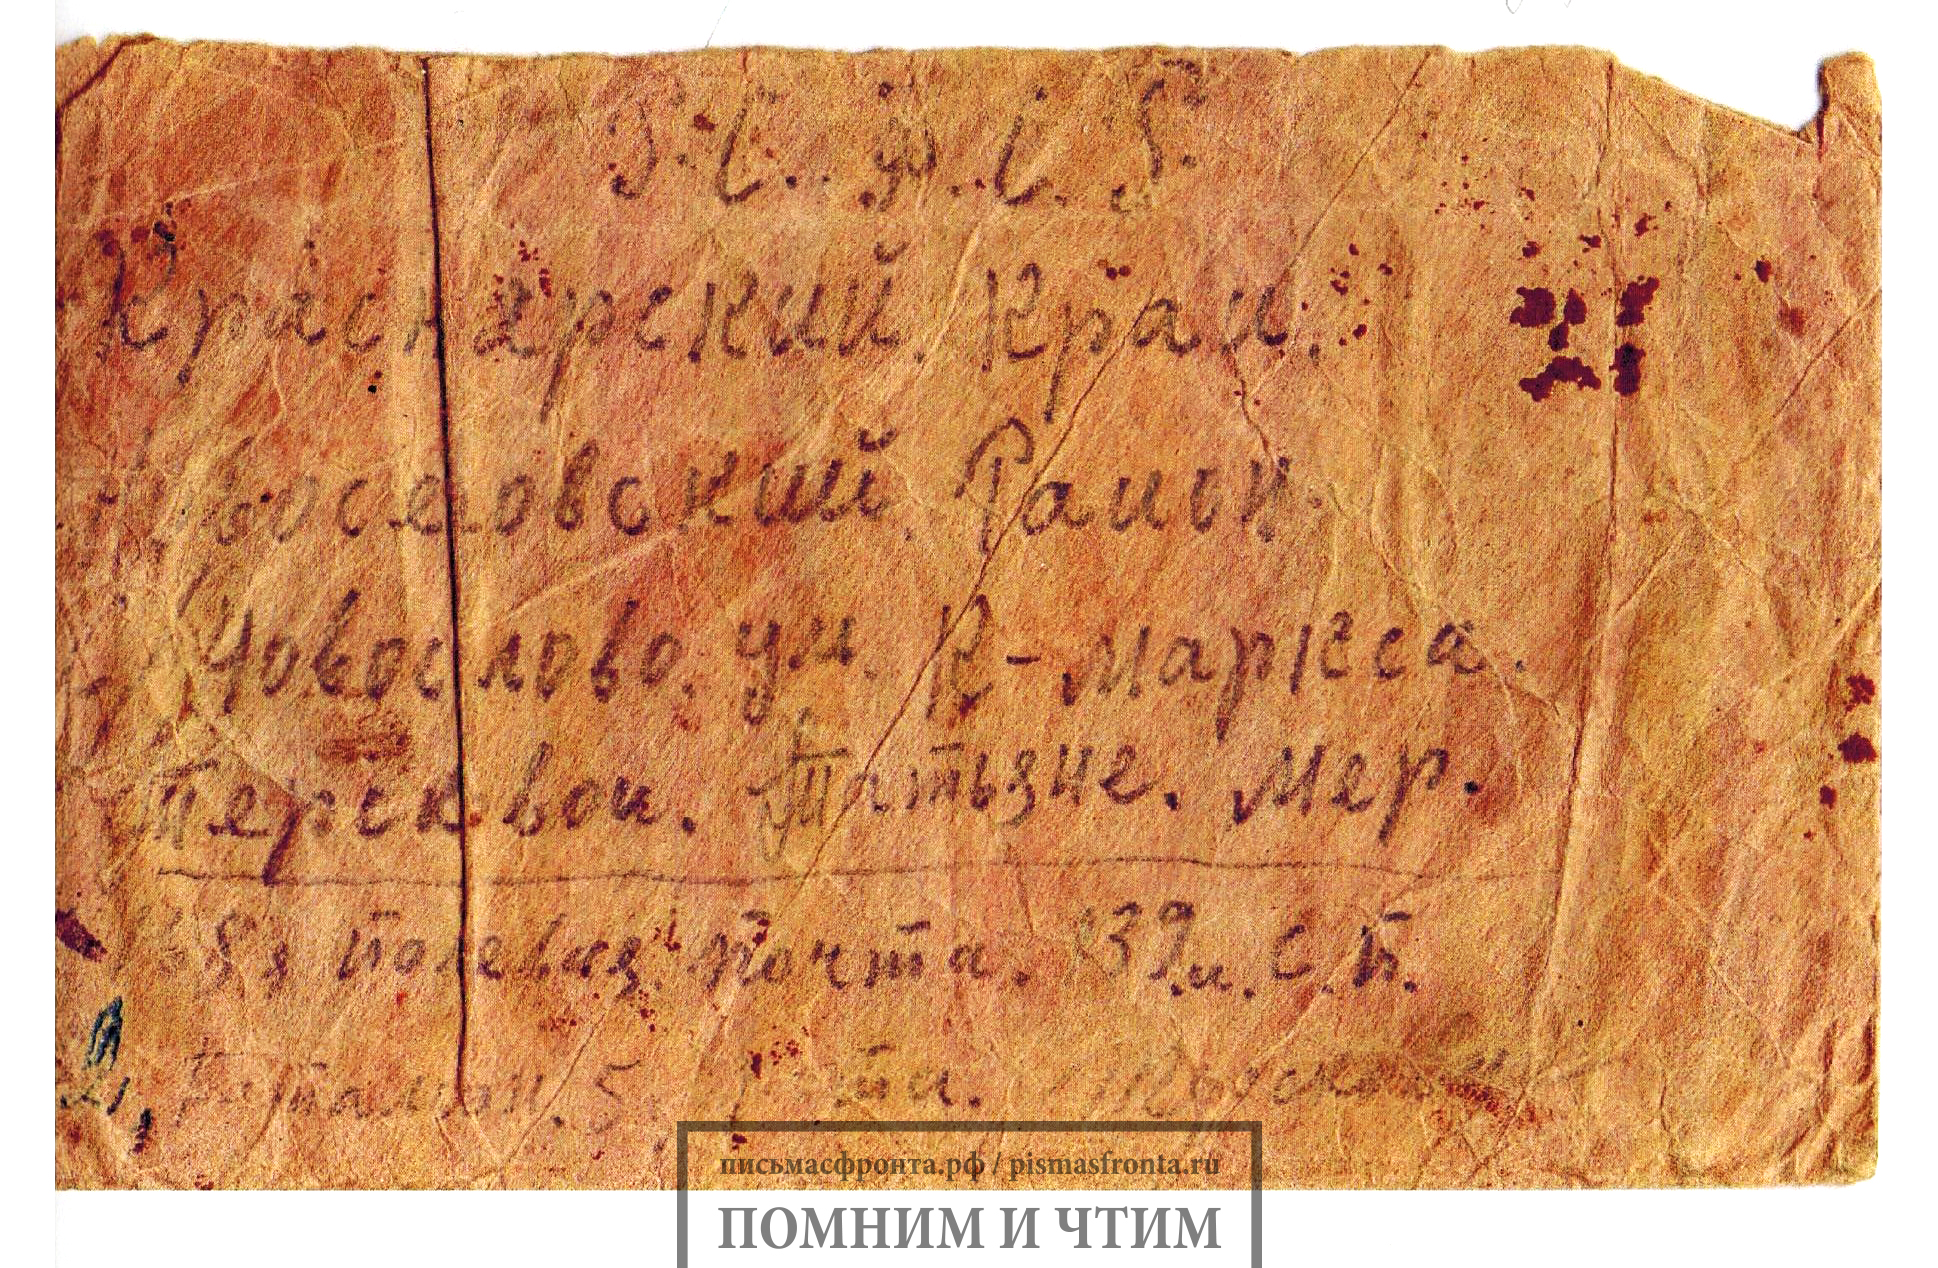 Краснярский. Край.
Новоселовский Район.
Новослово. ул. К-Маркса.
Терсковои. Татьяне. Мер.
8я Полевая Почта. 39. и. С. П.
5.
письмасфронта.рф / pismasfronta.ru
ПОМНИМ И ЧТИМ